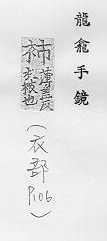 龍龕手鏡
蒲盖反
衣被也
（衣部 P.106）